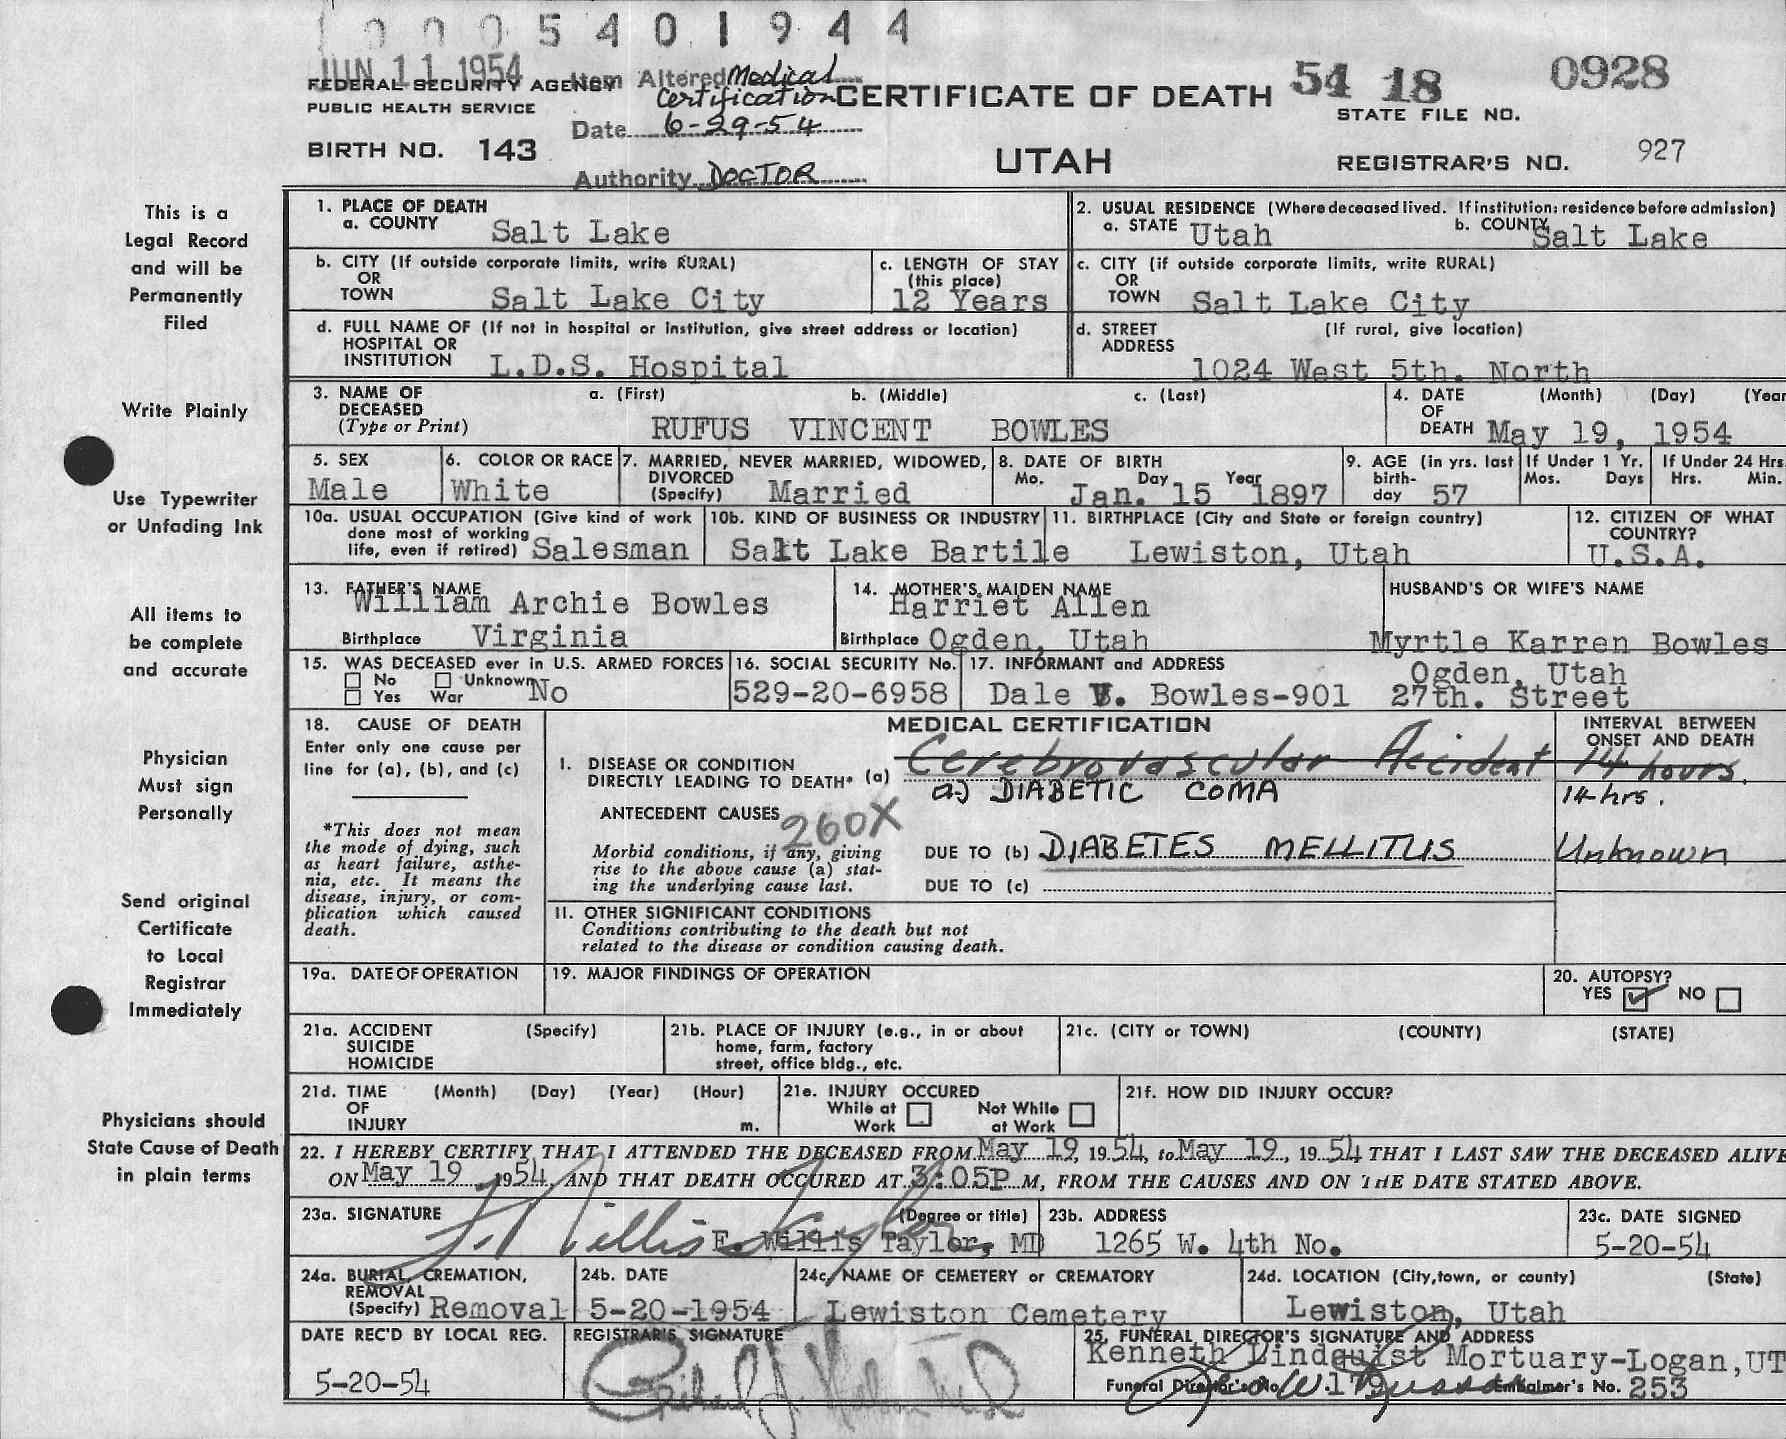 0005401944
JUN 11 1954
FEDERAL SECURITY AGENCY
PUBLIC HEALTH SERVICE
BIRTH NO. 143
Item Altered Medical
Certification
Date 6-29-54
Authority DOCTOR
CERTIFICATE OF DEATH
UTAH
54 18 0928
STATE FILE NO.
REGISTRAR'S NO. 927
This is a
Legal Record
and will be
Permanently
Filed
Write Plainly
Use Typewriter
or Unfading Ink
All items to
be complete
and accurate
Physician
Must sign
Personally
Send original
Certificate
to Local
Registrar
Immediately
Physicians should
State Cause of Death
in plain terms
1. PLACE OF DEATH
a. COUNTY Salt Lake
2. USUAL RESIDENCE (Where deceased lived. If institution: residence before admission)
a. STATE Utah b. COUNTY Salt Lake
b. CITY (If outside corporate limits, write RURAL)
OR
TOWN Salt Lake City
c. LENGTH OF STAY
(this place)
12 Years
c. CITY (if outside corporate limits, write RURAL)
OR
TOWN Salt Lake City
d. FULL NAME OF (If not in hospital or institution, give street address or location)
HOSPITAL OR
INSTITUTION L.D.S. Hospital
d. STREET (If rural, give location)
ADDRESS
1024 West 5th. North
3. NAME OF a. (First) b. (Middle) c. (Last)
DECEASED
(Type or Print) RUFUS VINCENT BOWLES
4. DATE (Month) (Day) (Year
OF
DEATH May 19, 1954
5. SEX
Male
6. COLOR OR RACE
White
7. MARRIED, NEVER MARRIED, WIDOWED,
DIVORCED
(Specify) Married
8. DATE OF BIRTH
Mo. Day Year
Jan. 15 1897
9. AGE (in yrs. last
birth-
day 57
If Under 1 Yr.
Mos. Days
If Under 24 Hrs.
Hrs. Min.
10a. USUAL OCCUPATION (Give kind of work
done most of working
life, even if retired) Salesman
10b. KIND OF BUSINESS OR INDUSTRY
Salt Lake Bartile
11. BIRTHPLACE (City and State or foreign country)
Lewiston, Utah
12. CITIZEN OF WHAT
COUNTRY?
U.S.A.
13. FATHER'S NAME
William Archie Bowles
Birthplace Virginia
14. MOTHER'S MAIDEN NAME
Harriet Allen
Birthplace Ogden, Utah
HUSBAND'S OR WIFE'S NAME
Myrtle Karren Bowles
15. WAS DECEASED ever in U.S. ARMED FORCES
No Unknown
Yes War No
16. SOCIAL SECURITY No.
529-20-6958
17. INFORMANT and ADDRESS
Ogden, Utah
Dale V. Bowles-901 27th. Street
18. CAUSE OF DEATH
Enter only one cause per
line for (a), (b), and (c)
*This does not mean
the mode of dying, such
as heart failure, asthe-
nia, etc. It means the
disease, injury, or com-
plication which caused
death.
MEDICAL CERTIFICATION
INTERVAL BETWEEN
ONSET AND DEATH
I. DISEASE OR CONDITION
DIRECTLY LEADING TO DEATH* (a) Cerebrovascular Accident 14 hours
a) DIABETIC COMA 14 hrs.
ANTECEDENT CAUSES 260X
Morbid conditions, if any, giving
rise to the above cause (a) stat-
ing the underlying cause last.
DUE TO (b) DIABETES MELLITUS Unknown
DUE TO (c)
II. OTHER SIGNIFICANT CONDITIONS
Conditions contributing to the death but not
related to the disease or condition causing death.
19a. DATE OF OPERATION
19. MAJOR FINDINGS OF OPERATION
20. AUTOPSY?
YES ✓ NO
21a. ACCIDENT (Specify)
SUICIDE
HOMICIDE
21b. PLACE OF INJURY (e.g., in or about
home, farm, factory
street, office bldg., etc.
21c. (CITY or TOWN) (COUNTY) (STATE)
21d. TIME (Month) (Day) (Year) (Hour)
OF
INJURY m.
21e. INJURY OCCURED
While at Not While
Work at Work
21f. HOW DID INJURY OCCUR?
22. I HEREBY CERTIFY THAT I ATTENDED THE DECEASED FROM May 19, 1954, to May 19, 1954 THAT I LAST SAW THE DECEASED ALIVE
ON May 19, 1954, AND THAT DEATH OCCURED AT 3:05P M, FROM THE CAUSES AND ON THE DATE STATED ABOVE.
23a. SIGNATURE (Degree or title)
E. Willis Taylor, MD
23b. ADDRESS
1265 W. 4th No.
23c. DATE SIGNED
5-20-54
24a. BURIAL, CREMATION,
REMOVAL
(Specify) Removal
24b. DATE
5-20-1954
24c. NAME OF CEMETERY or CREMATORY
Lewiston Cemetery
24d. LOCATION (City, town, or county) (State)
Lewiston, Utah
DATE REC'D BY LOCAL REG.
5-20-54
REGISTRAR'S SIGNATURE
25. FUNERAL DIRECTOR'S SIGNATURE AND ADDRESS
Kenneth Lindquist Mortuary-Logan, UT
Funeral Director's No. 179 Embalmer's No. 253